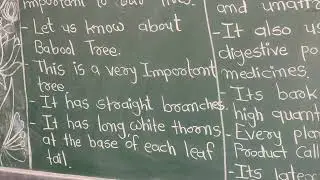 important to our lives.
- Let us know about
Babool Tree.
- This is a very Important
tree.
- It has straight branches.
- It has long white thorns
at the base of each leaf
tail.
and
- It also us
digestive po
medicines.
- Its bark
high quant
- Every plan
Product Call
- Its latex